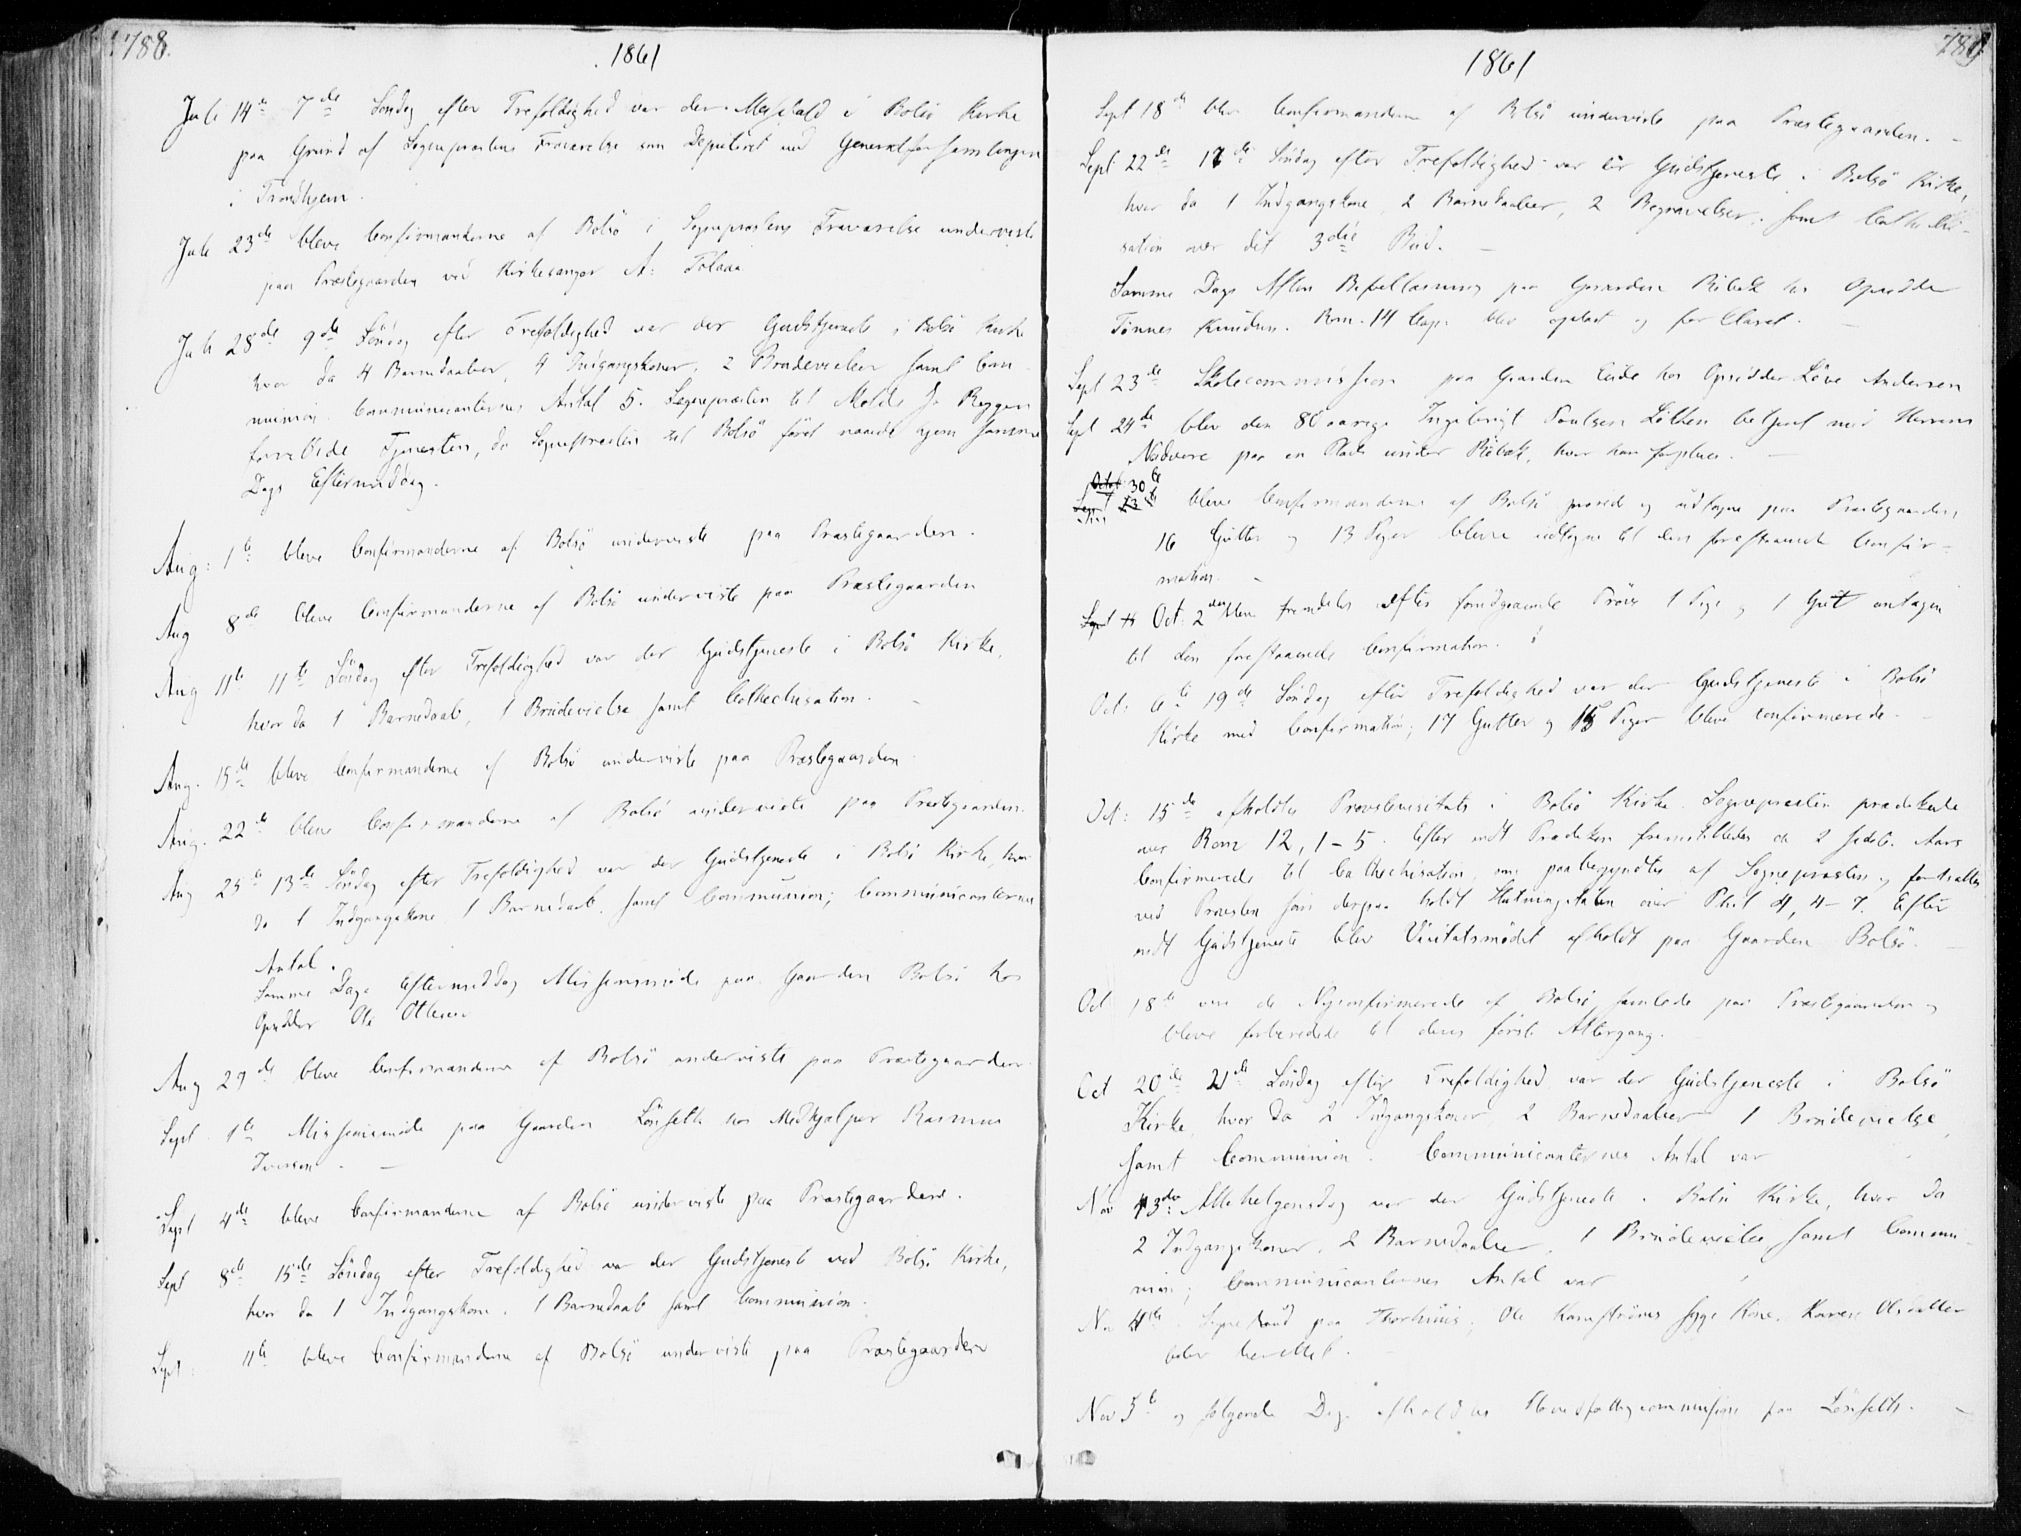 788.
1861
Juli 14de 7de Søndag efter Trefoldighed var der Messefald i Bolsö Kirke
paa Grund af Sognepræstens Fraværelse som Deputeret ved Generalforsamlingen
i Trondhjem.
Juli 23de bleve Confirmanderne af Bolsö i Sognepræstens Fraværelse underviste
paa Præstegaarden ved Kirkesanger A:
Juli 28de 9de Søndag efter Trefoldighed var der Gudstjeneste i Bolsö Kirke
hvor da 4 Barnedaaber, 4 Indgangskoner, 2 Brudevielser samt Com-
munion. Communicanternes Antal 5. Sognepræsten til Molde
Tjenesten, da Sognepræsten til Bolsö først naaede hjem samme
Dags Eftermiddag.
Aug: 1te bleve Confirmanderne af Bolsö underviste paa Præstegaarden.
Aug 8de bleve Confirmanderne af Bolsö underviste paa Præstegaarden
Aug 11te 11te Söndag efter Trefoldighed var der Gudstjeneste i Bolsö Kirke,
hvor da 1 Barnedaab, 1 Brudevielse samt Cathechisation.
Aug. 15de bleve Confirmanderne af Bolsö underviste paa Præstegaarden
Aug. 22de bleve Confirmanderne af Bolsö underviste paa Præstegaarden.
Aug 25te 13de Söndag efter Trefoldighed var der Gudstjeneste i Bolsö Kirke, hvor
da 1 Indgangskone, 1 Barnedaab, samt Communion; Communicanternes
Antal.
Samme Dags Eftermiddag Missionsmöde paa Gaarden Bolsö hos
Opsidder Ole
Aug 29de bleve Confirmanderne af Bolsö underviste paa Præstegaarden.
Sept. 1te Missionsmöde paa Gaarden Lönseth hos Medhjælper Rasmus
Iversen. —
Sept 4de bleve Confirmanderne af Bolsö underviste paa Præstegaarden.
Sept 8de 15de Söndag efter Trefoldighed var der Gudstjeneste ved Bolsö Kirke,
hvor da 1 Indgangskone, 1 Barnedaab samt Communion.
Sept: 11te bleve Confirmanderne af Bolsö underviste paa Præstegaarden
789
1861
Sept 18de blev Confirmanderne af Bolsö underviste paa Præstegaarden. —
Sept 22de 17de Söndag efter Trefoldighed var der Gudstjeneste i Bolsö Kirke,
hvor da 1 Indgangskone, 2 Barnedaaber, 2 Begravelser, samt Cathechi-
sation over det 3die Bud. —
Samme Dags Aften Bibellæsning paa Gaarden Röbek hos Opsidder
Tönnes Knudsen. Rom. 14 Cap. blev oplæst og forklaret. —
Sept 23de Skolecommission paa Gaarden hos Opsidder Andersen
Sept 24de blev den 80 aarige Ingebrigt Paulsen betjent med Herrens
Nadvere paa en Plads under Röbek, hvor han
30te
bleve Confirmanderne af Bolsö prøvede og udtagne paa Præstegaarden,
16 Gutter og 13 Piger bleve udtagne til den forestaaende Confir-
mation. —
Oct. 2den bleve fremdeles efter foregaaende Pröve 1 Pige og 1 Gut antagen
til den forestaaende Confirmation.
Oct: 6te 19de Söndag efter Trefoldighed var der Gudstjeneste i Bolsö
Kirke med Confirmation; 17 Gutter og 15 Piger bleve confirmerede. —
Oct: 15de afholdtes Provstevisitats i Bolsö Kirke. Sognepræsten prædikede
over Rom 12, 1-5. Efter endt Prædiken fremstilledes de 2 sidste Aars
Confirmerede til Cathechisation, som paabegyndtes af Sognepræsten og fortsattes
ved Provsten som derpaa holdt Slutningstalen over Phil 4, 4-7. Efter
endt Gudstjeneste blev Visitatsmödet afholdt paa Gaarden Bolsö. —
Oct 18de vare de Nyconfirmerede af Bolsö samlede paa Præstegaarden og
bleve forberedede til deres förste Altergang.
Oct 20de 21de Söndag efter Trefoldighed var der Gudstjeneste i Bolsö
Kirke, hvor da 2 Indgangskoner, 2 Barnedaaber, 1 Brudevielse,
samt Communion. Communicanternes Antal var
Nov 3die Allehelgensdag var der Gudstjeneste i Bolsö Kirke, hvor da
2 Indgangskoner, 2 Barnedaaber, 1 Brudevielse samt Commu-
nion; Communicanternes Antal var
Nov 4de. paa Ole syge Kone, Karen
blev berettet. —
Nov 5te og følgende Dage afholdtes paa Lönseth. —